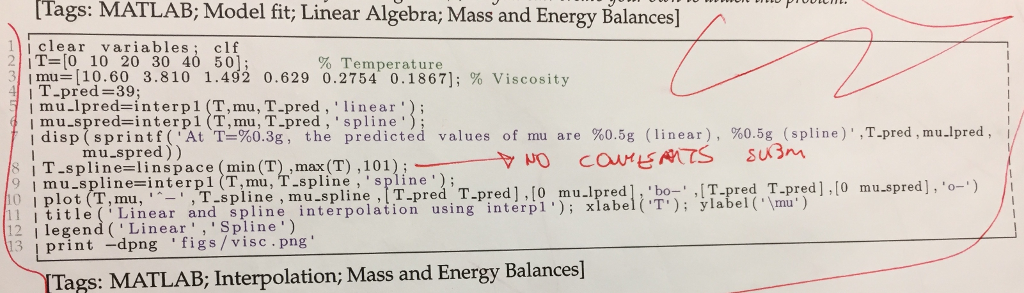 [Tags: MATLAB; Model fit; Linear Algebra; Mass and Energy Balances]
1 clear variables; clf
2 T=[0 10 20 30 40 50]; % Temperature
3 mu=[10.60 3.810 1.492 0.629 0.2754 0.1867]; % Viscosity
4 T_pred=39;
5 mu_lpred=interp1(T,mu,T_pred,'linear');
6 mu_spred=interp1(T,mu,T_pred,'spline');
7 disp(sprintf('At T=%0.3g, the predicted values of mu are %0.5g (linear), %0.5g (spline)',T_pred,mu_lpred,
mu_spred))
8 T_spline=linspace(min(T),max(T),101); NO COMMENTS SUBM
9 mu_spline=interp1(T,mu,T_spline,'spline');
10 plot(T,mu,'^-',T_spline,mu_spline,[T_pred T_pred],[0 mu_lpred],'bo-',[T_pred T_pred],[0 mu_spred],'o-')
11 title('Linear and spline interpolation using interp1'); xlabel('T'); ylabel('\mu')
12 legend('Linear','Spline')
13 print -dpng 'figs/visc.png'
[Tags: MATLAB; Interpolation; Mass and Energy Balances]